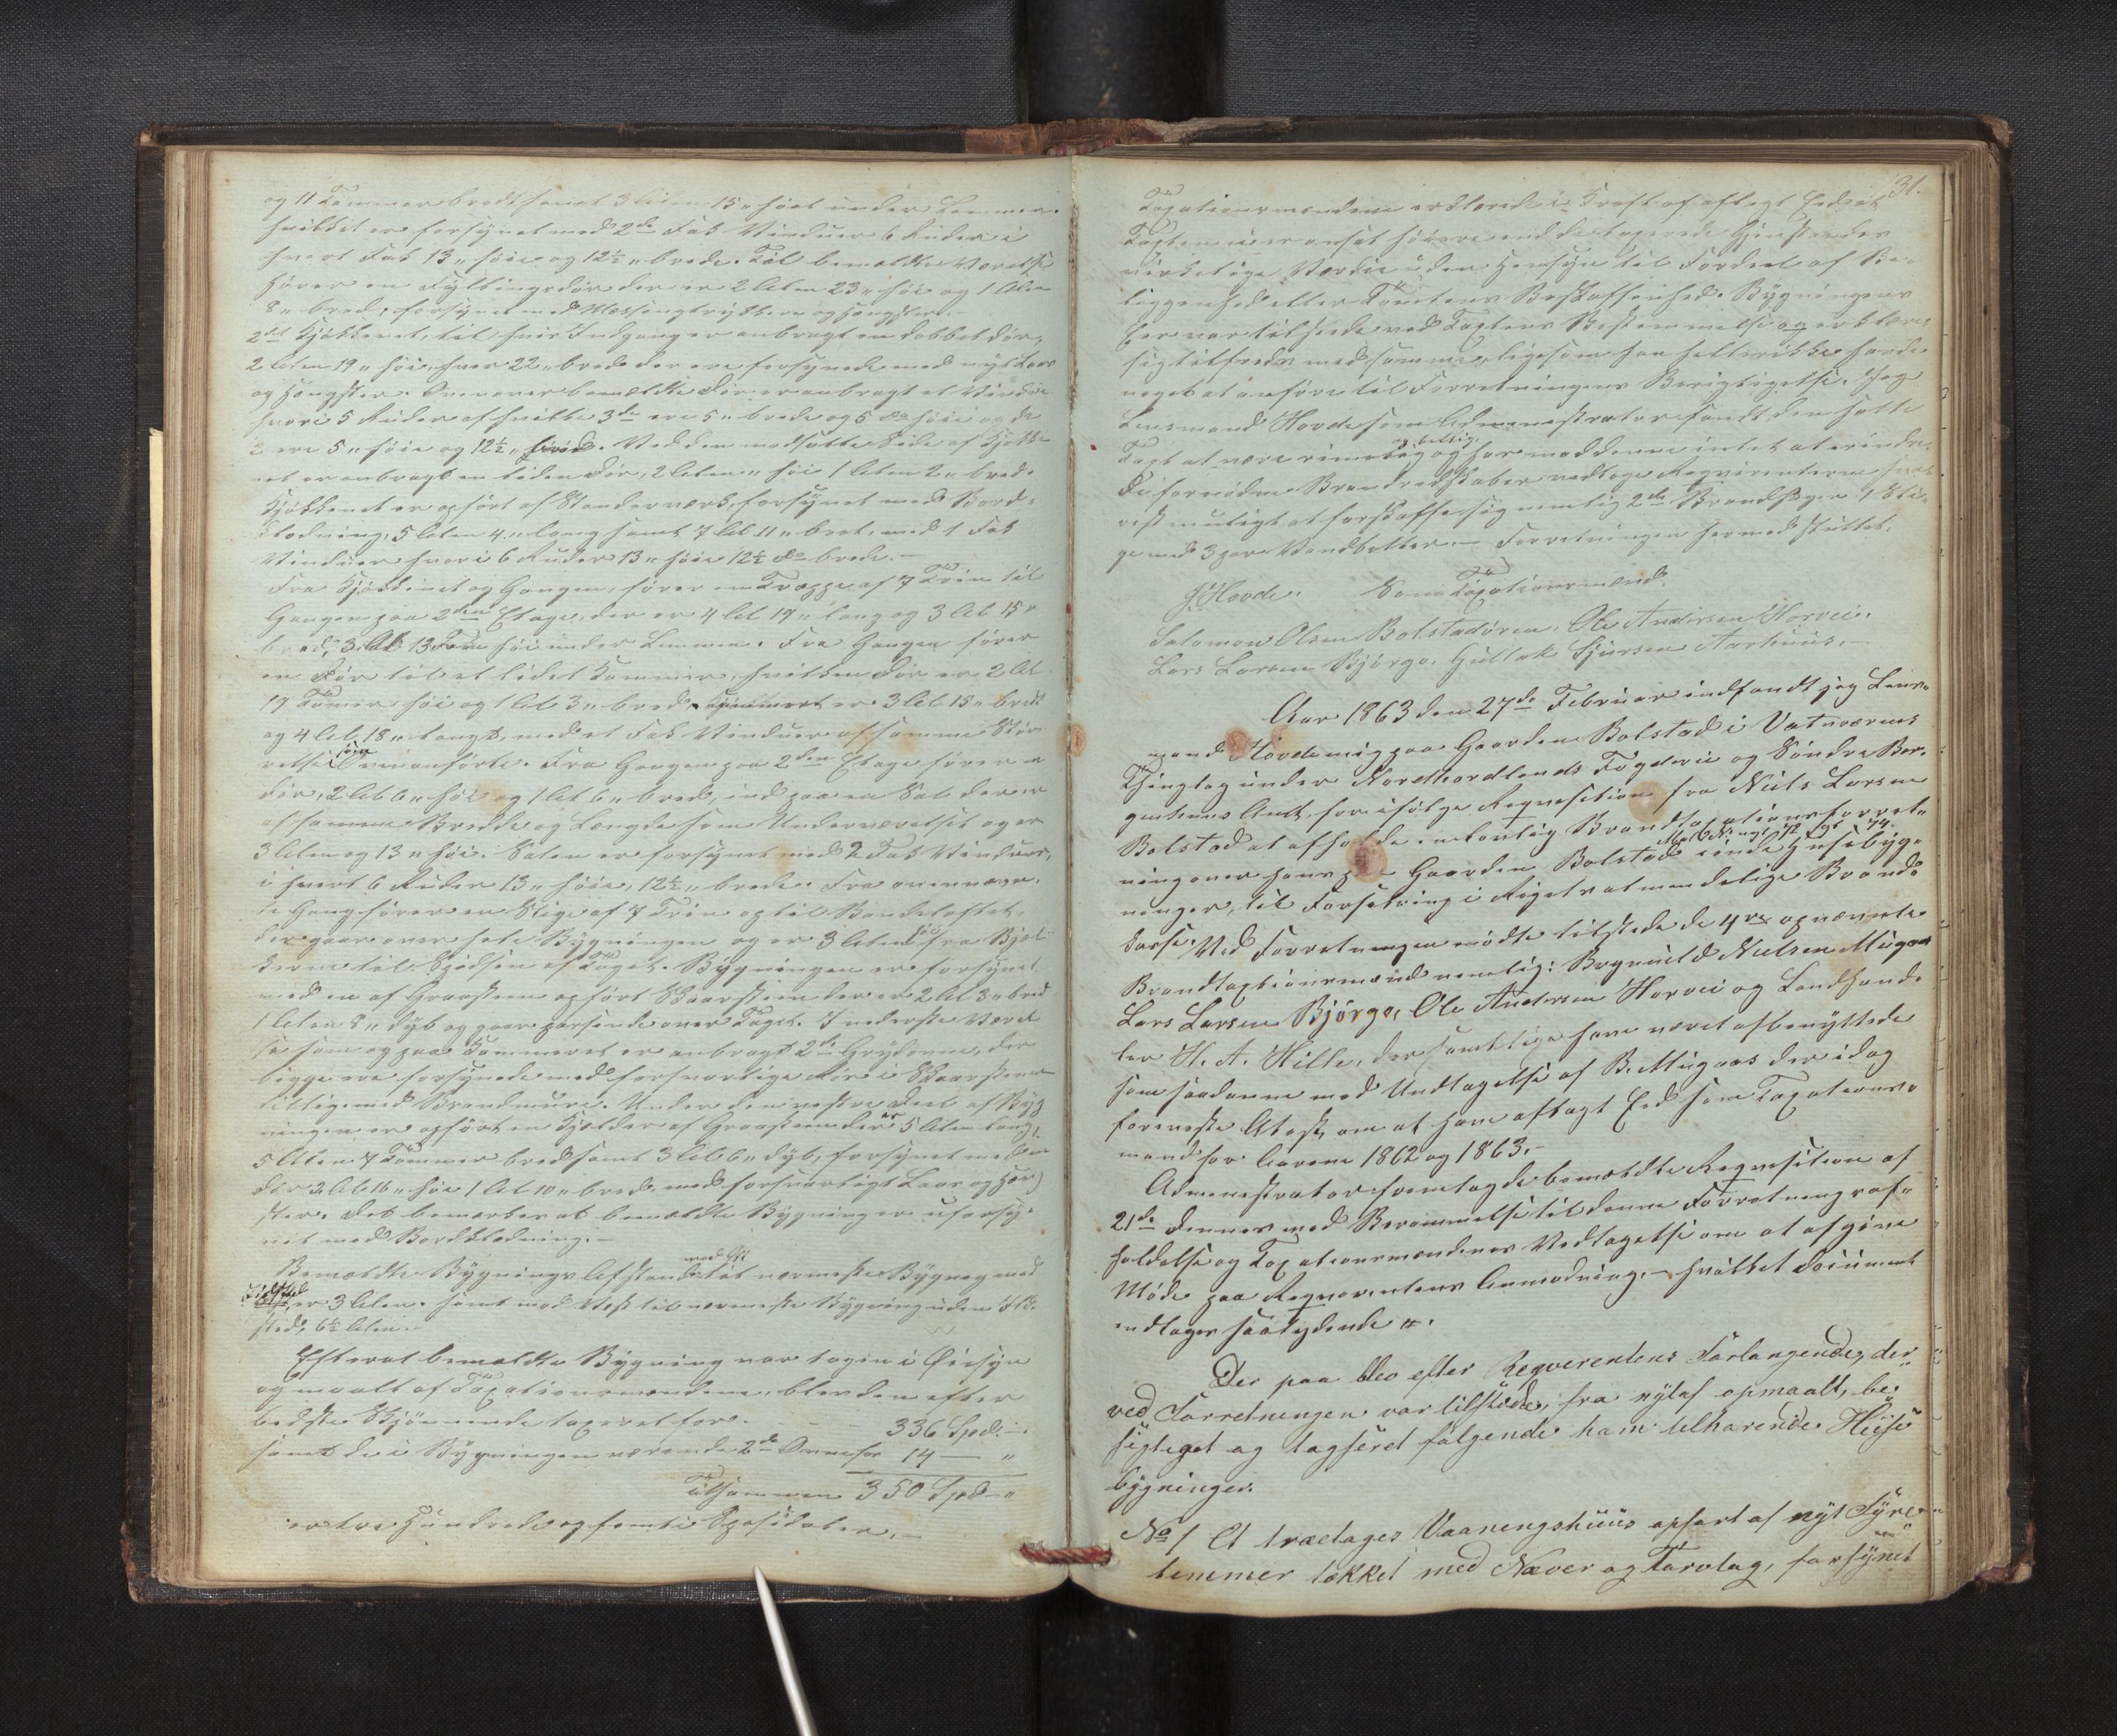 og 11 Tommer bredt samt 3 Alen 15" høit under Lemmen.
hvilket er forsynet med 2de Fak Vinduer 6 Ruder i
hvert Fak 13" høie og 12½" brede. Til bemældte Værelse
fører en Fyldingsdør der er 2 Alen 23" høi og 1 Alen
8" bred, forsynet med Messingtrykkere og Hængsler.
2det Kjøkkenet, til hvis Indgang er anbragt en dobbet Dør,
2 Alen 19" høi, hver 22" bred der ere forsynede med nyt Laas
og Hængsler. Ovenover bemældte Dør er anbragt et Vindue
hvori 5 Ruder af hvilke 3de ere 5" brede og 5 do høie og de
2 ere 5" høie og 12½" brede. Ved den modsatte Side af Kjøkke-
net er anbragt en liden Dør, 2 Alen " høi 1 Alen 2" bred.
Kjøkkenet er opført af Standerværk, forsynet med Bord-
klædning, 5 Alen 4" lang samt 7 Al 11" bret, med 1 Fak
Vinduer hvori 6 Ruder 13" høie 12½ do brede.-
Fra Kjøkkenet og Gangen, fører en Trappe af 7 Trin til
Gangen paa 2den Etage, der er 4 Al 19" lang og 3 Al 15"
bred, 3 Al 13 Tom høi under Lemmen. Fra Gangen fører
en Dør til et lidet Kammer, hvilken Dør er 2 Al
17 Tomer høi og 1 Al 3" bred. Kammeret er 3 Al 15" bredt
og 4 Al 18" langt, med et Fak Vinduer af samme Stør
relse som ovenanførte. Fra Gangen paa 2den Etage fører en
Dør, 2 Al 6" høi og 1 Al 6" bred, ind paa en Sal der er
af samme Bredde og Længde som Underværelset og er
3 Alen og 13" høi. Salen er forsynet med 2 Fak Vinduer,
i hvert 6 Ruder 13" høie, 12½" brede. Fra ovennævn-
te Gang fører en Stige af 7 Trin op til Bondeloftet,
der gaar over hele Bygningen og er 3 Alen høi fra Bjæl-
kerne til Spidsen af Taget. Bygningen er forsynet
med en af Graasteen opført Skaarsteen der er 2 Al 3" bred
1 Alen 8" dyb og gaar passende over Taget. I nederste Værel
se som og paa Kammeret er anbragt 2de Grydovne, der
begge ere forsynede med forsvarlige Rør i Skaarstenen
tilligemed Brandmure. Under den vestre Deel af Byg
ningen er opført en Kjelder af Graasteen der er 5 Alen lang,
5 Alen 7 Tommer bred samt 3 Al 6" dyb, forsynet med en
Dør 2 Al 16" høi 1 Al 10" bred, med forsvarligt Laas og Hæng
sler. Det bemærkes at bemældte Bygning er uforsy-
net med Bordklædning.-
Bemældte Bygnings Afstand mod Øst til nærmeste Bygning med
Ildsted er 3 Alen. samt mod Vest til nærmeste Bygning uden Ild-
sted, 6½ Alen.-
Efterat bemældte Bygning var tagen i Øiesyn
og maalt af Taxationsmændene, blev den efter
bedste Skjønnende taxeret for. 336 Spd.-
samt de i Bygningen værende 2de Ovne for 14 — "
Tilsammen 350 Spd "
er tre Hundrede og femti Speciedaler.
31.
Taxationsmændene erklærede i Kraft af aflagt Eed at
Taxten ei er ansat høiere end de taxerede Gjenstandes
virkelige Værdie uden Hensyn til Fordeel af Be-
liggenhed eller Tomtens Beskaffenhed. Bygningens
Eier var tilstede ved Taxtens Bestemmelse og erklærede
sig tilfreds med samme, ligesom han hellerikke havde
noget at anføre til Forretningens Berigtigelse. Jeg
Lensmand Hovde som Administrator fandt den satte
Taxt at være rimelig og billig og har moddenne intet at erindre.
De fornødne Brandredskaber vedtoge Reqvirenterne snar
rest muligt at forskaffe sig nemlig 2de Brandhager 1 Sti-
ge med 3 par Vandbøtter.- Forretningen hermed sluttet.
J. Hovde. Som Taxationsmænd.
Salomon Olsen Bolstadøren. Ole Andersen Horvei.
Lars Larsen Bjørgo. Gullak Sjursen Aarhuus.-
Aar 1863 den 27de Februar indfandt jeg Lens-
mand Hovde mig paa Gaarden Bolstad i
Thinglag under Nordhordlands Fogderie og Søndre Ber-
genhuus Amt, for ifølge Reqvisition fra Niels Larsen
Bolstad at afholde en lovlig Brandtaxationsforret-
ning over hans paa Gaarden Bolstad Matr No nyt 72 gl 74. værende Huusebyg-
ninger, til Forsikring i Rigets almindelige Brand-
kasse. Ved Forretningen mødte tilstede de 4re opnævnte
Brandtaxtionsmænd nemlig: Brynield Nielsen Mügaas
Lars Larsen Bjørgo, Ole Andersen Horvei og Landhand-
ler H. A. Hille, der samtlige have været afbenyttede
som saadanne med Undtagelse af B. Mügaas der idag
foreviste Atest, om at have aflagt Eed som Taxations-
mand for Aarene 1862 og 1863.-
Administrator fremlagde bemældte Reqvisition af
21de dennes med Berammelse til denne Forretnings af-
holdelse og Taxationsmændenes Vedtagelse om at afgive
Møde paa Reqvirentens Anmodning.- hvilket Document
indtages saalydende #.
Der paa blev efter Reqverentens Forlangende, der
ved Forretningen var tilstede, fra nytaf opmaalt, be-
sigtiget og tagseret følgende ham tilhørende Huse
bygninger.
No 1 Et toetages Vaaningshuus opført af nyt Fyre-
temmer tækket med Næver og Torvtag, forsynet